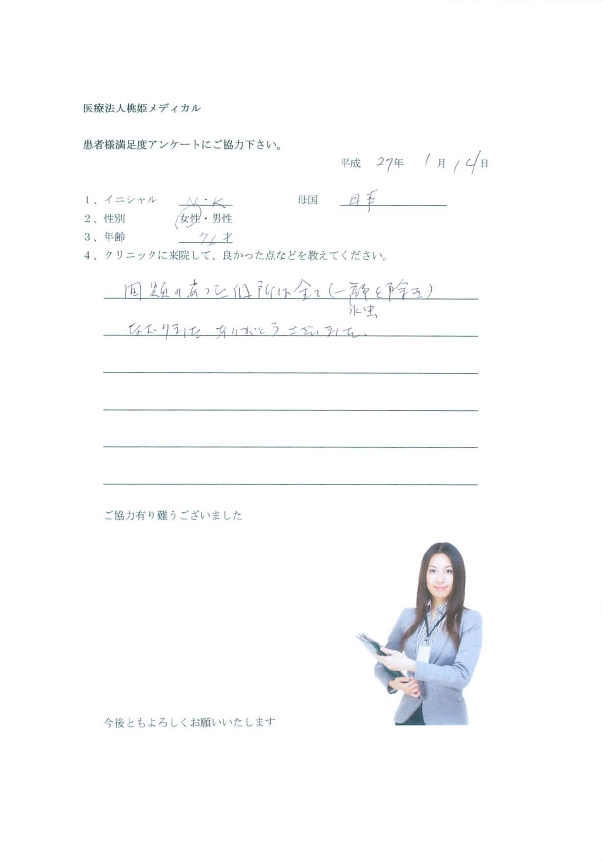 医療法人桃姫メディカル
患者様満足度アンケートにご協力下さい。
平成 27年 1月 14日
1、イニシャル N・K 母国 日本
2、性別 女性・男性
3、年齢 才
4、クリニックに来院して、良かった点などを教えてください。
問題のあった個所は全て(一部を除き)
水虫
なおりました ありがとうございました。
ご協力有り難うございました
今後ともよろしくお願いいたします